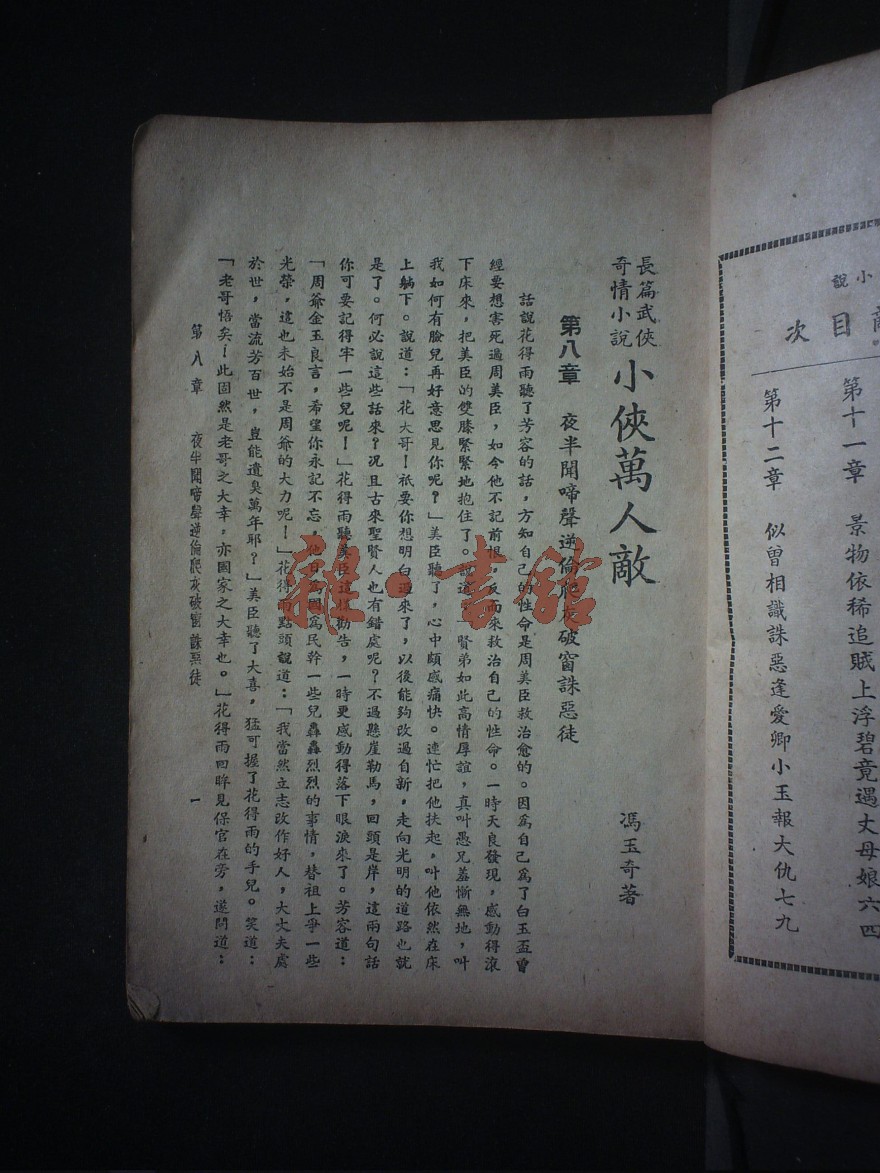 小說
敵目次
第十一章　景物依稀追賊上浮碧竟遇丈母娘六四
第十二章　似曾相識誅惡逢愛卿小玉報大仇七九
長篇武俠
奇情小說
小俠萬人敵
馮玉奇著
第八章　夜半聞啼聲逆倫爬灰破窗誅惡徒
話說花得雨聽了芳容的話，方知自己的性命是周美臣救治愈的。因爲自己爲了白玉盃曾
經要想害死過周美臣，如今他不記前恨，反而來救治自己的性命。一時天良發現，感動得滾
下床來，把美臣的雙膝緊緊地抱住了。說道：「賢弟如此高情厚誼，真叫愚兄羞慚無地，叫
我如何有臉兒再好意思見你呢？」美臣聽了，心中頗感痛快。連忙把他扶起，叫他依然在床
上躺下。說道：「花大哥！祇要你想明白過來了，以後能夠改過自新，走向光明的道路也就
是了。何必說這些話來？况且古來聖賢人也有錯處呢？不過懸崖勒馬，回頭是岸，這兩句話
你可要記得牢一些兒呢！」花得雨聽美臣這樣勸告，一時更感動得落下眼淚來了。芳容道：
「周爺金玉良言，希望你永記不忘，他日爲國爲民幹一些兒轟轟烈烈的事情，替祖上爭一些
光榮，這也未始不是周爺的大力呢！」花得雨點頭說道：「我當然立志改作好人，大丈夫處
於世，當流芳百世，豈能遺臭萬年耶？」美臣聽了大喜，猛可握了花得雨的手兒。笑道：
「老哥悟矣！此固然是老哥之大幸，亦國家之大幸也。」花得雨回眸見保官在旁，遂問道：
第八章　夜半聞啼聲逆倫爬灰破窗誅惡徒　一
雜·書館